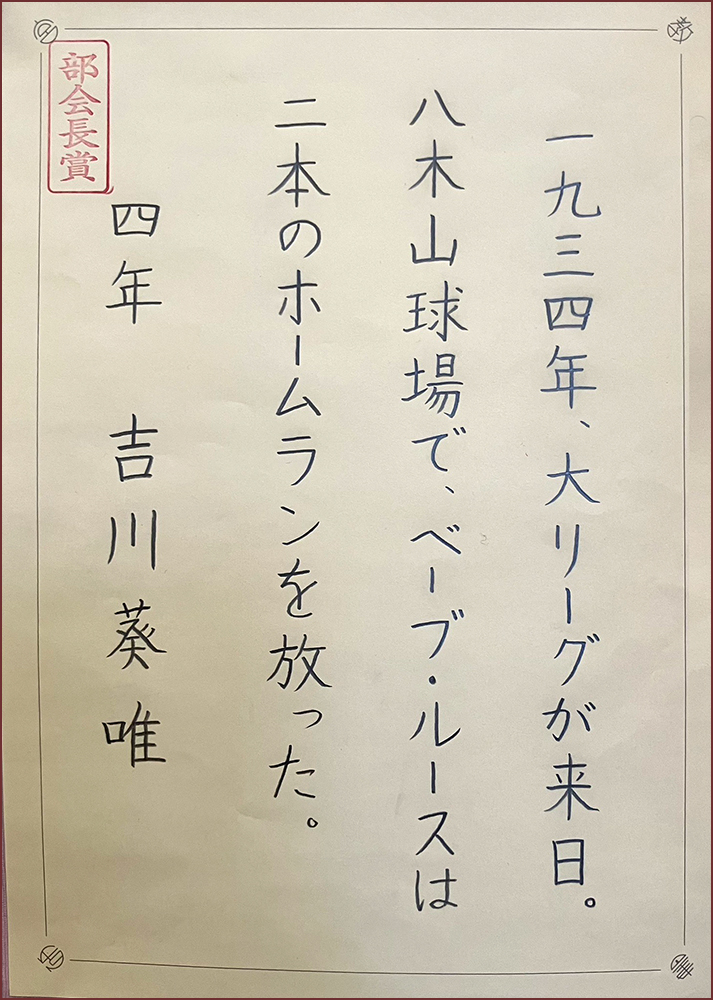 一九三四年、大リーグが来日。
八木山球場で、ベーブ・ルースは
二本のホームランを放った。
四年 吉川葵唯
部会長賞